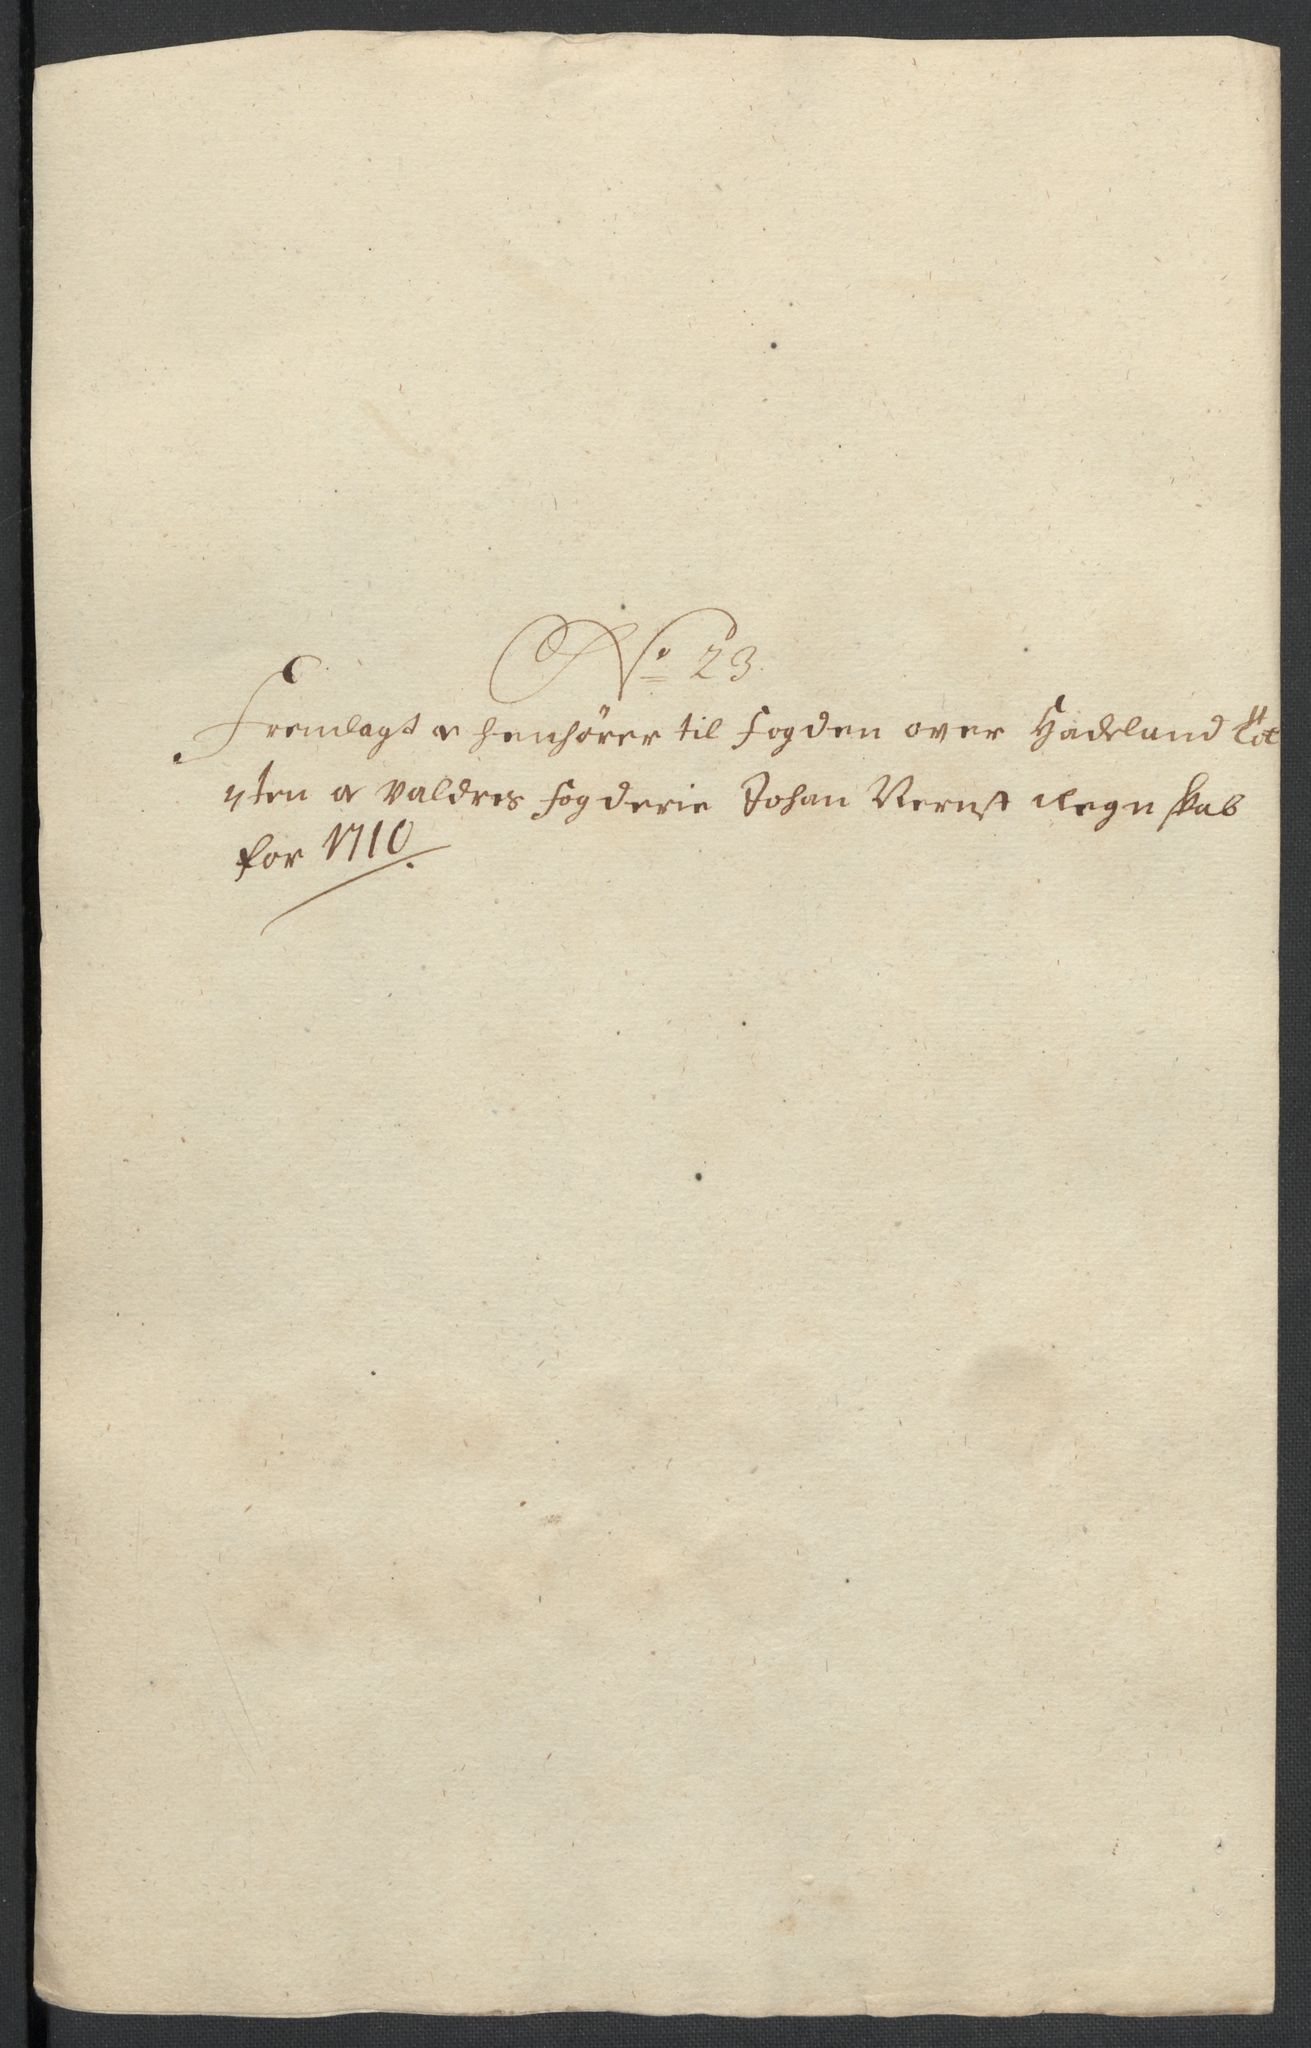 No. 23.
Fremlagt og henhörer til Fogden over Hadeland Tot
ten og Valdres Fogderie Johan Vernst Regnskab
for 1710.